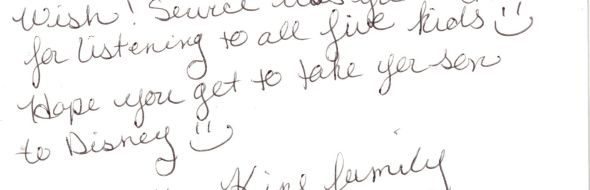 Wish!
for listening to all five kids
Hope you get to take yer son
to Disney
King family